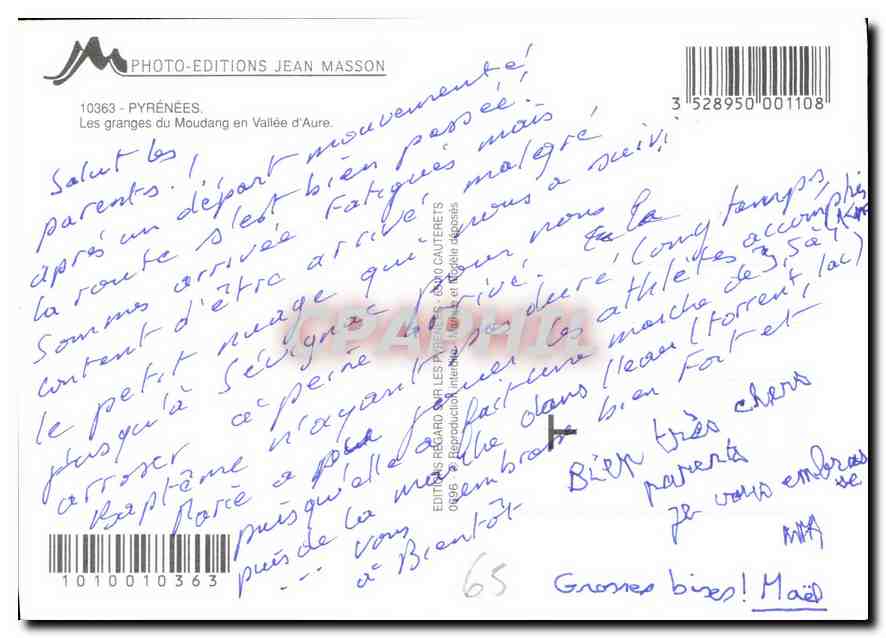 PHOTO-EDITIONS JEAN MASSON
10363 - PYRÉNÉES.
Les granges du Moudang en Vallée d'Aure.
3 528950 001108
Salut les
parents !
après un départ mouvementé,
la route s'est bien passée.
Sommes arrivée fatigués mais
content d'être arrivé, malgré
le petit nuage qui nous a suivi
jusqu'à Sévignac pour nous
arroser à peine arrivé. Le
Baptême n'ayant pas duré longtemps,
Marie a pu jouer les athlètes accomplis
puisqu'elle a fait une marche de 3,5 à
puis de la marche dans l'eau (torrent, lac)
... vous embrasse bien fort et
à Bientôt
Bien très chers
parents
je vous embras
se
Grosses bises! Maël
EDITIONS REGARD SUR LES PYRENEES - 65110 CAUTERETS
0696 - © Reproduction interdite - Marque et Modèle déposés
CPAPHIL
1010010363
65